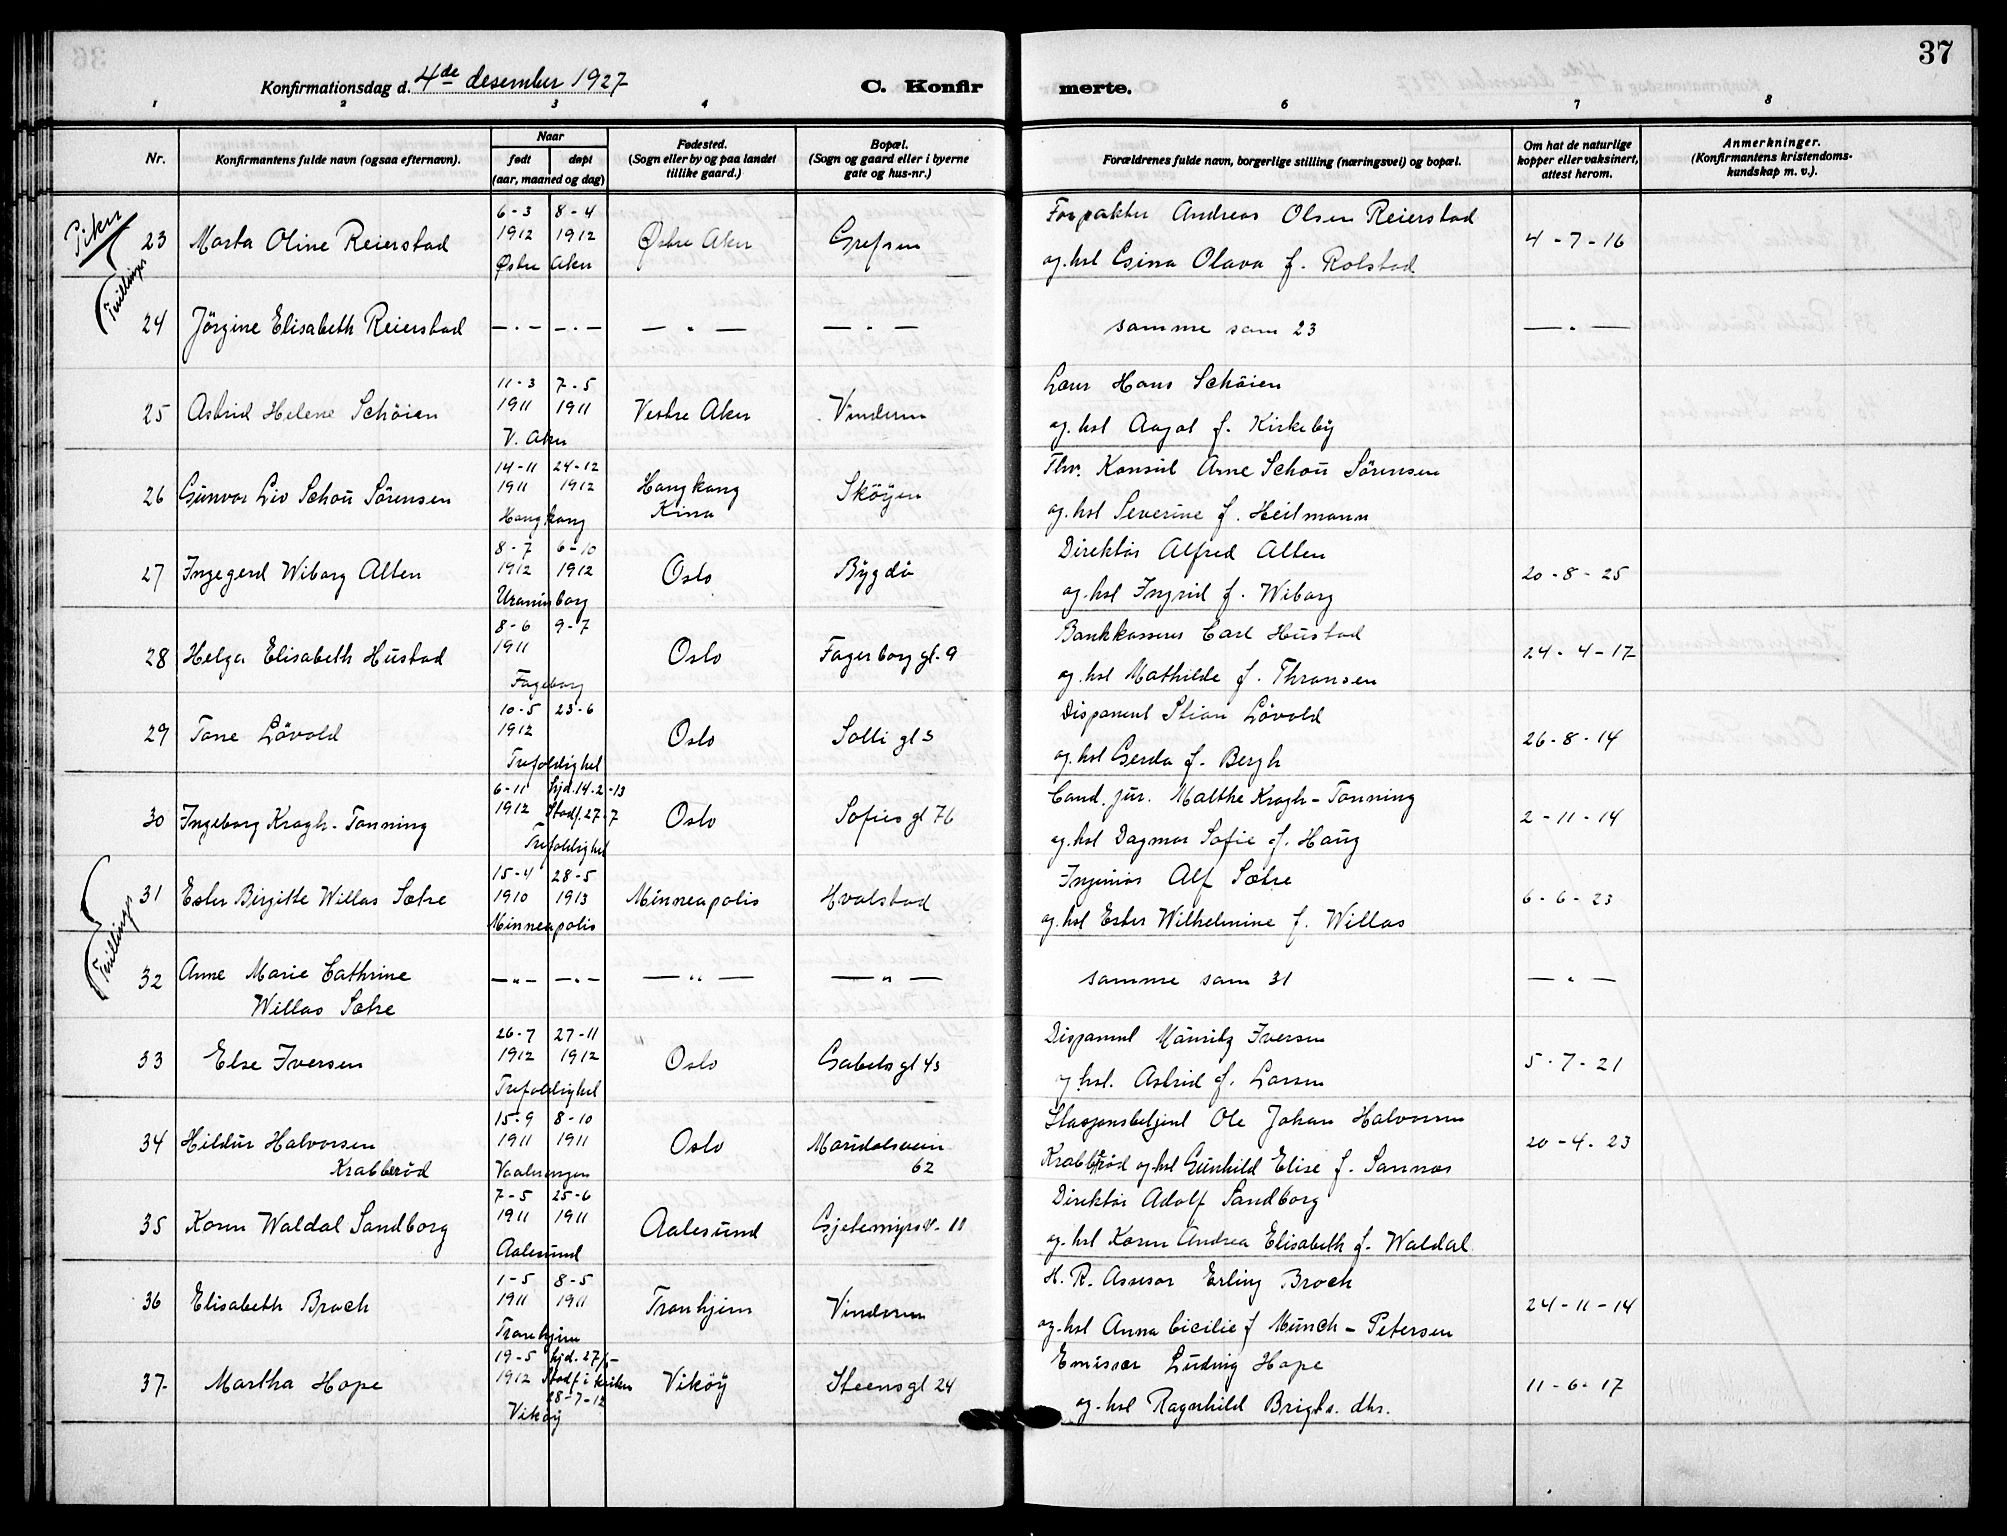 37
Konfirmationsdag d. 4de desember 1927
C. Konfirmerte.
1 2 3 4 6 7 8
Nr.
Konfirmantens fulde navn (ogsaa efternavn).
Naar
født døpt
(aar, maaned og dag)
Fødested.
(Sogn eller by og paa landet
tillike gaard.)
Bopæl.
(Sogn og gaard eller i byerne
gate og hus-nr.)
Forældrenes fulde navn, borgerlige stilling (næringsvei) og bopæl.
Om hat de naturlige
kopper eller vaksinert,
attest herom.
Anmerkninger.
(Konfirmantens kristendoms-
kundskap m. v.).
Piker
Tvillinger
6-3 8-4 Forpakter Andreas Olsen Reierstad
23 Marta Oline Reierstad 1912 1912 Østre Aker Grefsen 4-7-16
Østre Aker og hst Gina Olava f. Rolstad
24 Jörgine Elisabeth Reierstad —·— —·— — " — — " — samme som 23 — " —
11-3 7-5 Hans Schöien
25 Astrid Helene Schöien 1911 1911 Vestre Aker Vinderen
V. Aker og hst Aagot f. Kirkeby
14-11 24-12 Konsul Arne Schou Sörensen
26 Gunvor Liv Schou Sörensen 1911 1912 Hongkong Sköyen
Kina
Hongkong og hst Severine f. Heilmann
8-7 6-10 Direktör Alfred Alten
27 Ingegerd Wiborg Alten 1912 1912 Oslo Bygdö 20-8-25
Uranienborg og hst Ingrid f. Wiborg
8-6 9-7 Bankkasserer Carl Hustad
28 Helga Elisabeth Hustad 1911 Oslo Fagerborg gt. 9 24-4-17
Fagerborg og hst Mathilde f. Thransen
10-5 23-6 Disponent Stian Lövold
29 Tone Lövold 1912 Oslo Solli gt 3 26-8-14
Trefoldighet og hst Gerda f. Bergh
6-11 hjd. 14-2-13 Cand. jur. Malthe Krogh-Tonning
30 Ingeborg Krogh-Tonning 1912 Stadf. 27-7 Oslo Sofies gt 76 2-11-14
Trefoldighet og hst Dagmar Sofie f. Haug
Tvillinger
15-4 28-5 Ingeniör Alf Sætre
31 Ester Birgitte Willas Sætre 1910 1913 Minneapolis Hvalstad 6-6-23
Minneapolis og hst Ester Wilhelmine f. Willas
32 Anne Marie Cathrine —"— —"— — " — — " — samme som 31 — " —
Willas Sætre
26-7 27-11 Disponent Mauritz Iversen
33 Else Iversen 1912 1912 Oslo Gabelsgt 43 5-7-21
Trefoldighet og hst. Astrid f. Larsen
15-9 8-10 Stasjonsbetjent Ole Johan Halvorsen
34 Hildur Halvorsen 1911 1911 Oslo Maridalsveien 20-4-23
Krabberöd 62
Vaalerengen Krabberöd og hst Gunhild Elise f. Sannæs
7-5 25-6 Direktör Adolf Sandborg
35 Karen Waldal Sandborg 1911 1911 Aalesund Gjetemyrsv. 11
Aalesund og hst Karen Andrea Elisabeth f. Waldal
1-5 8-5 H. R. Assesor Erling Broch
36 Elisabeth Broch 1911 1911 Tronhjem Vinderen 24-11-14
Tronhjem og hst Anna Cicilie f Munch-Petersen
19-5 hjd. 27/5- Emissær Ludvig Hope
37. Martha Hope 1912 Stadf. i kirken Viköy Steensgt 24 11-6-17
28-7-12
Viköy og hst Ragnhild Brigts. dtr.